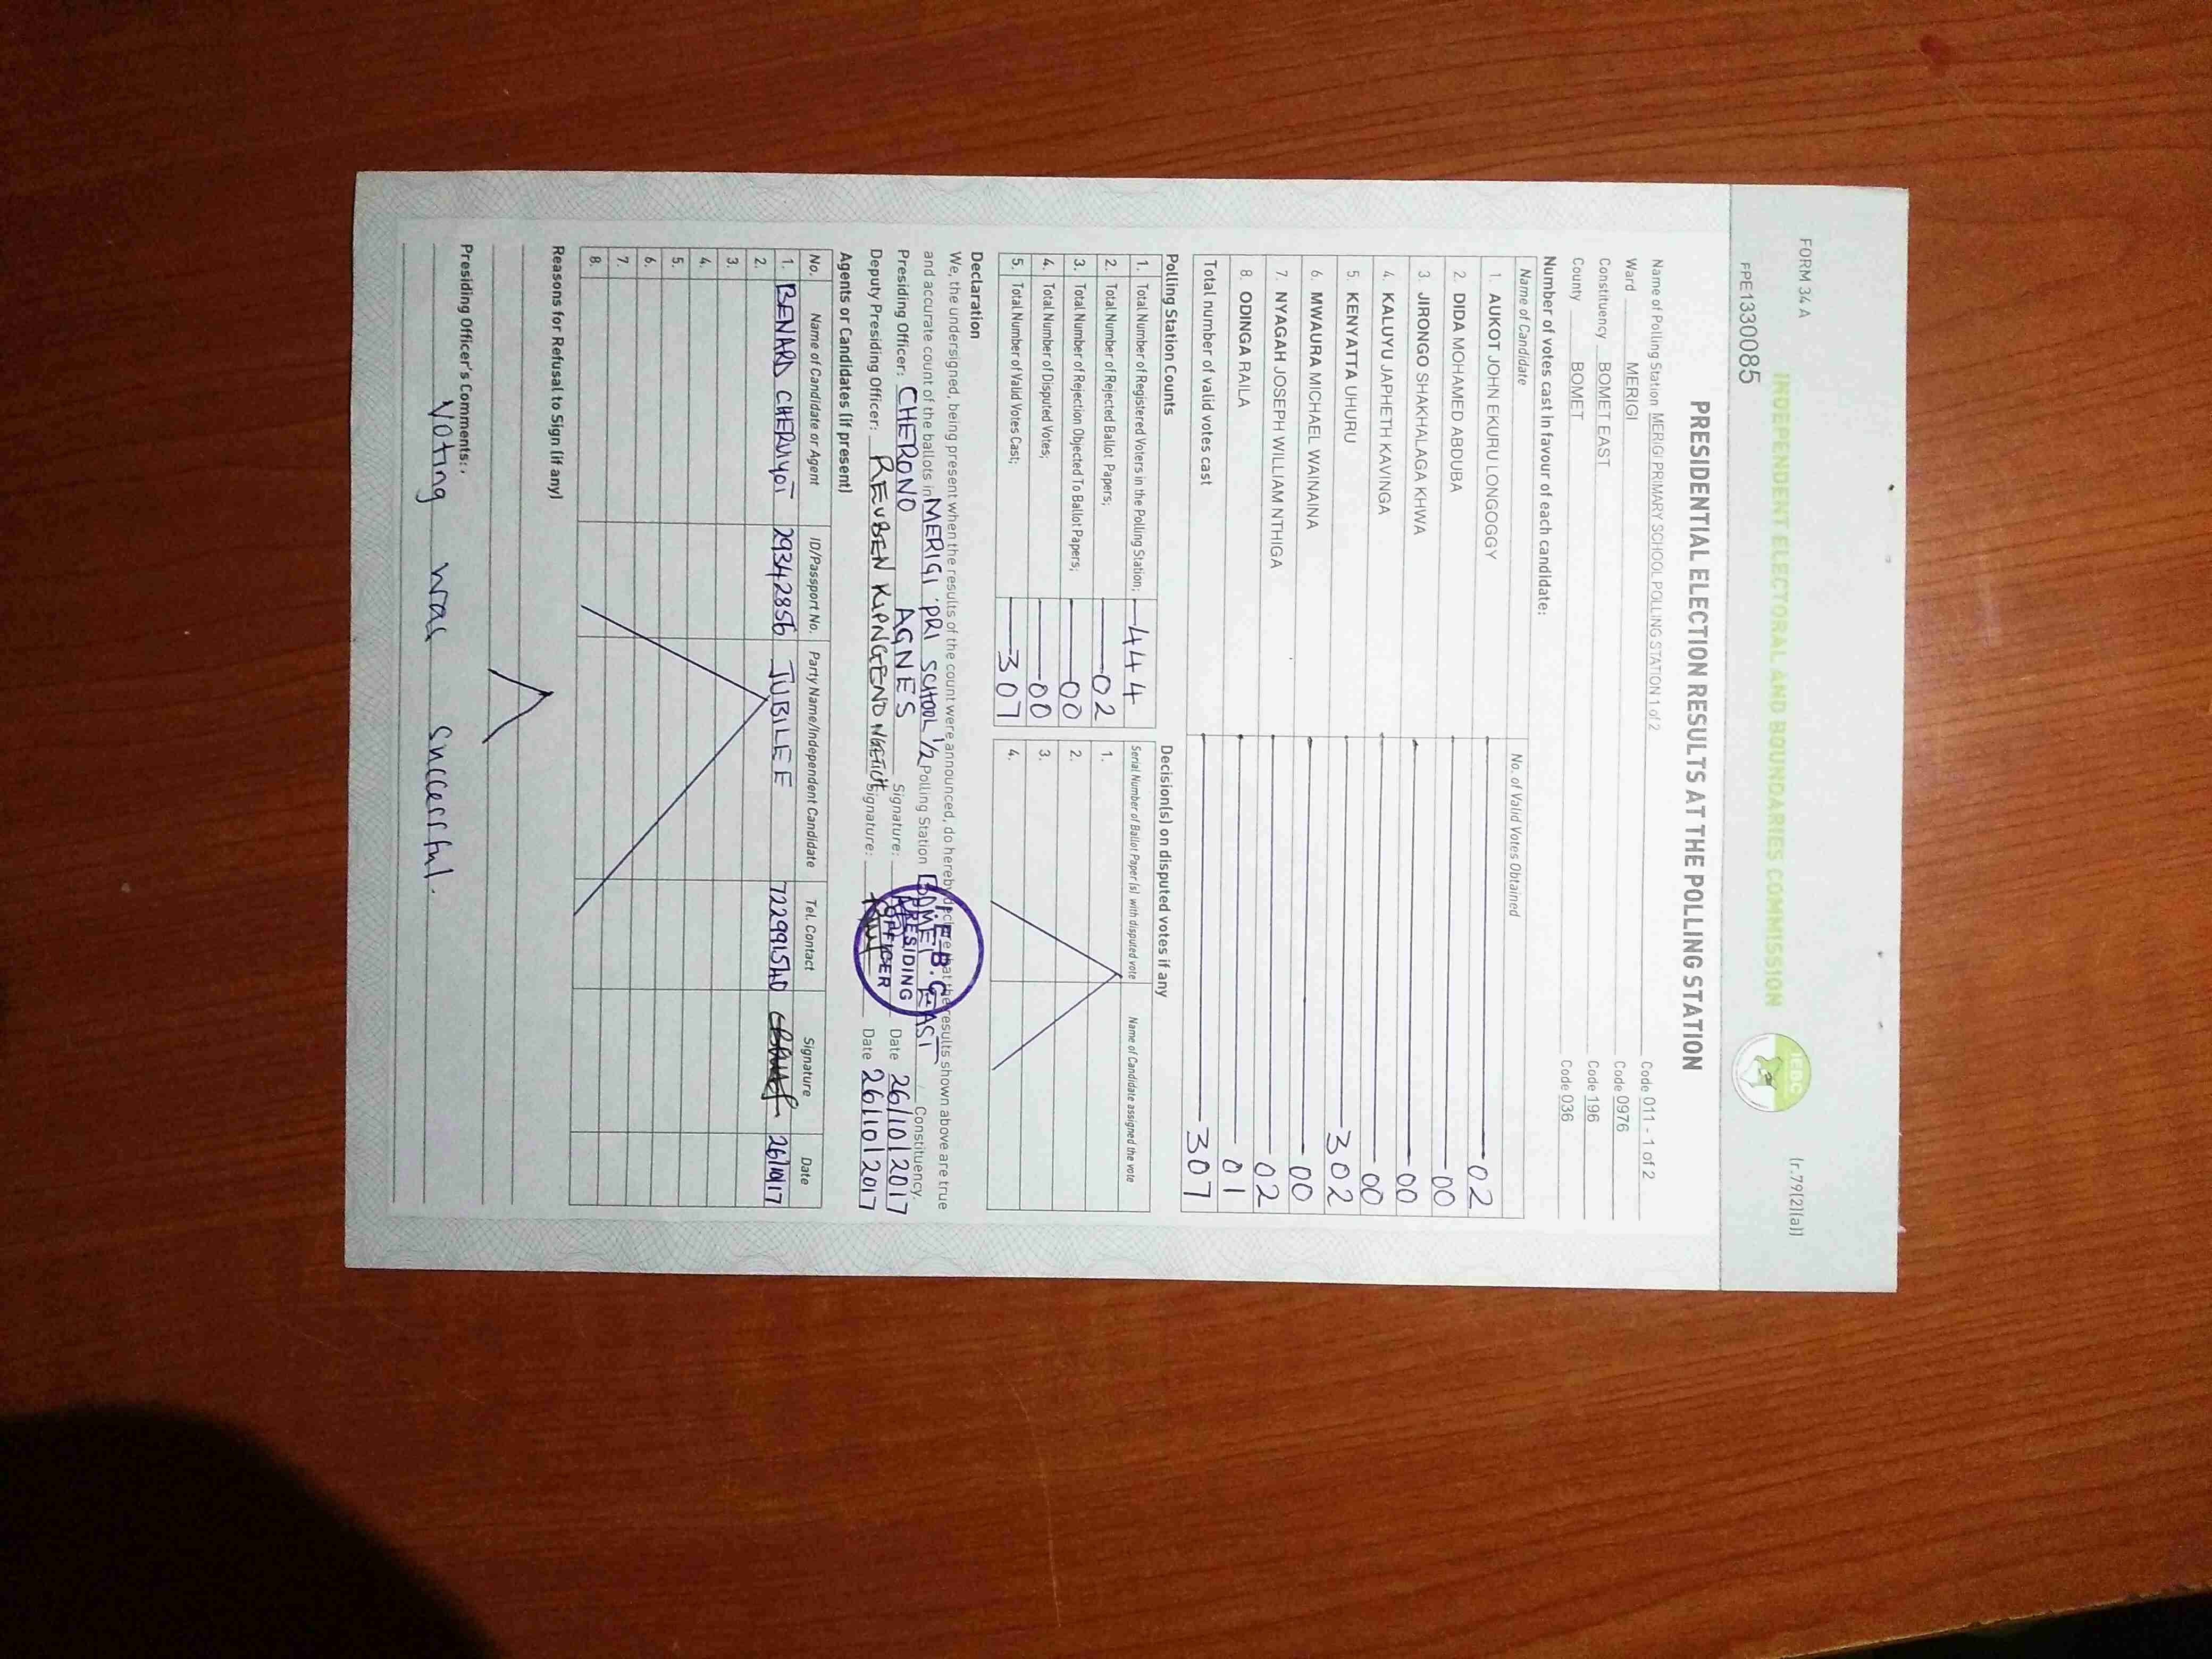 FORM 34 A
INDEPENDENT ELECTORAL AND BOUNDARIES COMMISSION
IEBC
(r.79(2)(a))
FPE1330085
PRESIDENTIAL ELECTION RESULTS AT THE POLLING STATION
Name of Polling Station MERIGI PRIMARY SCHOOL POLLING STATION 1 of 2 Code 011 - 1 of 2
Ward MERIGI Code 0976
Constituency BOMET EAST Code 196
County BOMET Code 036
Number of votes cast in favour of each candidate:
Name of Candidate No. of Valid Votes Obtained
1. AUKOT JOHN EKURU LONGOGGY 02
2. DIDA MOHAMED ABDUBA 00
3. JIRONGO SHAKHALAGA KHWA 00
4. KALUYU JAPHETH KAVINGA 00
5 KENYATTA UHURU 302
6. MWAURA MICHAEL WAINAINA 00
7. NYAGAH JOSEPH WILLIAM NTHIGA 02
8. ODINGA RAILA 01
Total number of valid votes cast 307
Polling Station Counts
1. Total Number of Registered Voters in the Polling Station; 444
2. Total Number of Rejected Ballot Papers; 02
3. Total Number of Rejection Objected To Ballot Papers; 00
4. Total Number of Disputed Votes; 00
5. Total Number of Valid Votes Cast; 307
Decision(s) on disputed votes if any
Serial Number of Ballot Paper (s) with disputed vote Name of Candidate assigned the vote
1.
2.
3.
4.
Declaration
We, the undersigned, being present when the results of the count were announced, do hereby declare that the results shown above are true
and accurate count of the ballots in MERIGI PRI SCHOOL 1/2 Polling Station BOMET EAST Constituency.
Presiding Officer: CHERONO AGNES Signature: Date 26/10/2017
Deputy Presiding Officer: REUBEN KIPNGENO NGETICH Signature: Date 26/10/2017
I.E.B.C
PRESIDING
OFFICER
Agents or Candidates (if present)
No. Name of Candidate or Agent ID/Passport No. Party Name/Independent Candidate Tel. Contact Signature Date
1. BENARD CHERUIYOT 29342856 JUBILEE 722991540 26/10/17
2.
3.
4.
5.
6.
7.
8.
Reasons for Refusal to Sign (if any)
Presiding Officer's Comments:
Voting was successful.